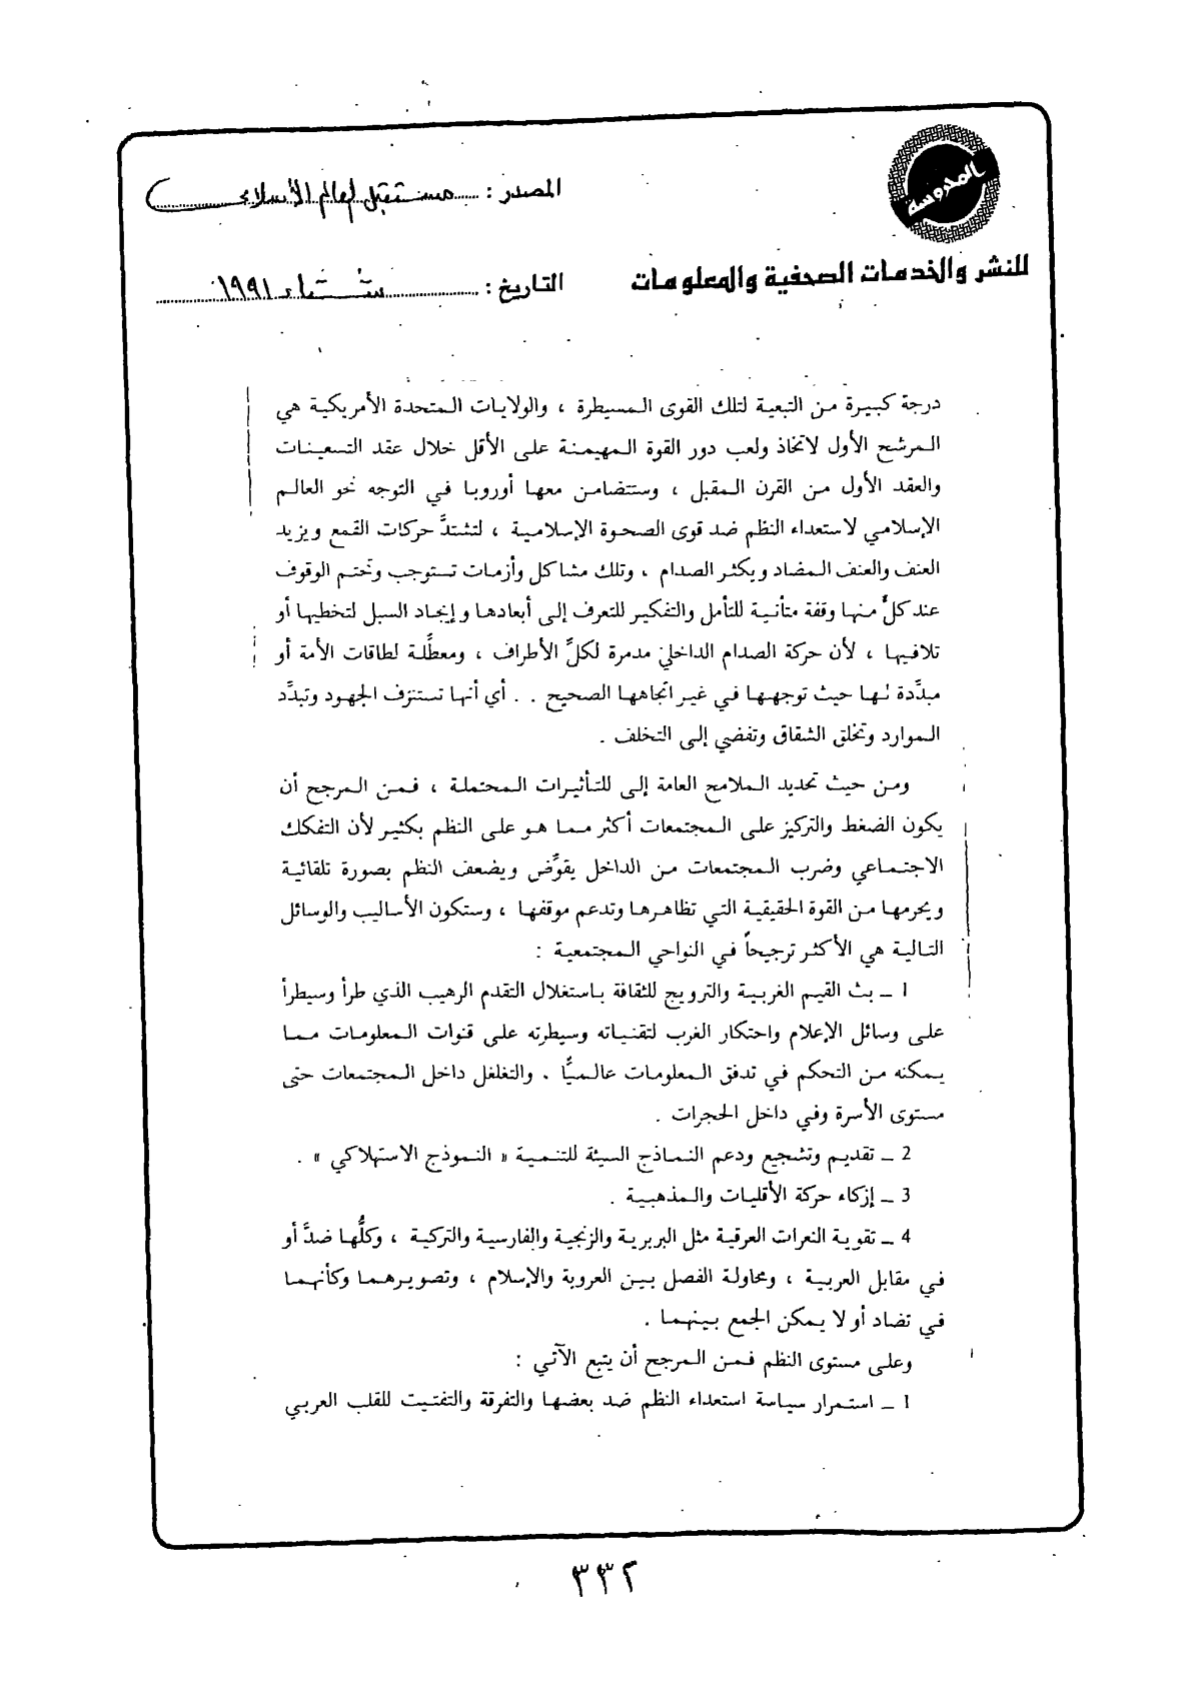 المحروسة
للنشر والخدمات الصحفية والمعلومات
المصدر : مستقبل العالم الأسلامي
التاريخ : شتاء ١٩٩١
درجة كبيرة من التبعية لتلك القوى المسيطرة ، والولايات المتحدة الأمريكية هي
المرشح الأول لاتخاذ ولعب دور القوة المهيمنة على الأقل خلال عقد التسعينات
والعقد الأول من القرن المقبل ، وستتضامن معها أوروبا في التوجه نحو العالم
الإسلامي لاستعداء النظم ضد قوى الصحوة الإسلامية ، لتشتدَّ حركات القمع ويزيد
العنف والعنف المضاد ويكثر الصدام ، وتلك مشاكل وأزمات تستوجب وتحتم الوقوف
عند كلٍّ منها وقفة متأنية للتأمل والتفكير للتعرف إلى أبعادها وإيجاد السبل لتخطيها أو
تلافيها ، لأن حركة الصدام الداخلي مدمرة لكلِّ الأطراف ، ومعطِّلة لطاقات الأمة أو
مبدِّدة لها حيث توجهها في غير اتجاهها الصحيح . . أي أنها تستنزف الجهود وتبدِّد
الموارد وتخلق الشقاق وتفضي إلى التخلف .
ومن حيث تحديد الملامح العامة إلى للتأثيرات المحتملة ، فمن المرجح أن
يكون الضغط والتركيز على المجتمعات أكثر مما هو على النظم بكثير لأن التفكك
الاجتماعي وضرب المجتمعات من الداخل يقوِّض ويضعف النظم بصورة تلقائية
ويحرمها من القوة الحقيقية التي تظاهرها وتدعم موقفها ، وستكون الأساليب والوسائل
التالية هي الأكثر ترجيحاً في النواحي المجتمعية :
1 ـ بث القيم الغربية والترويج للثقافة باستغلال التقدم الرهيب الذي طرأ وسيطرأ
على وسائل الإعلام واحتكار الغرب لتقنياته وسيطرته على قنوات المعلومات مما
يمكنه من التحكم في تدفق المعلومات عالميًّا . والتغلغل داخل المجتمعات حتى
مستوى الأسرة وفي داخل الحجرات .
2 ـ تقديم وتشجيع ودعم النماذج السيئة للتنمية « النموذج الاستهلاكي » .
3 ـ إزكاء حركة الأقليات والمذهبية .
4 ـ تقوية النعرات العرقية مثل البربرية والزنجية والفارسية والتركية ، وكلُّها ضدَّ أو
في مقابل العربية ، ومحاولة الفصل بين العروبة والإسلام ، وتصويرهما وكأنهما
في تضاد أو لا يمكن الجمع بينهما .
وعلى مستوى النظم فمن المرجح أن يتبع الآتي :
1 ـ استمرار سياسة استعداء النظم ضد بعضها والتفرقة والتفتيت للقلب العربي
٣٣٢